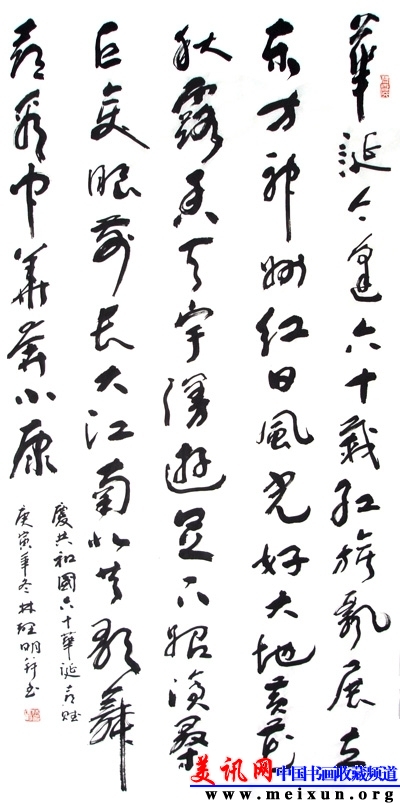 華誕今逢六十載红旗飘展立
东方神州红日風光好大地黄花
秋露香天宇漫遊足下滄桑
巨变眼前长大江南北共歌舞
喜看中華奔小康
慶共和國六十華誕喜赋
庚寅年冬林理明并书
美讯网中国书画收藏频道
www.meixun.org